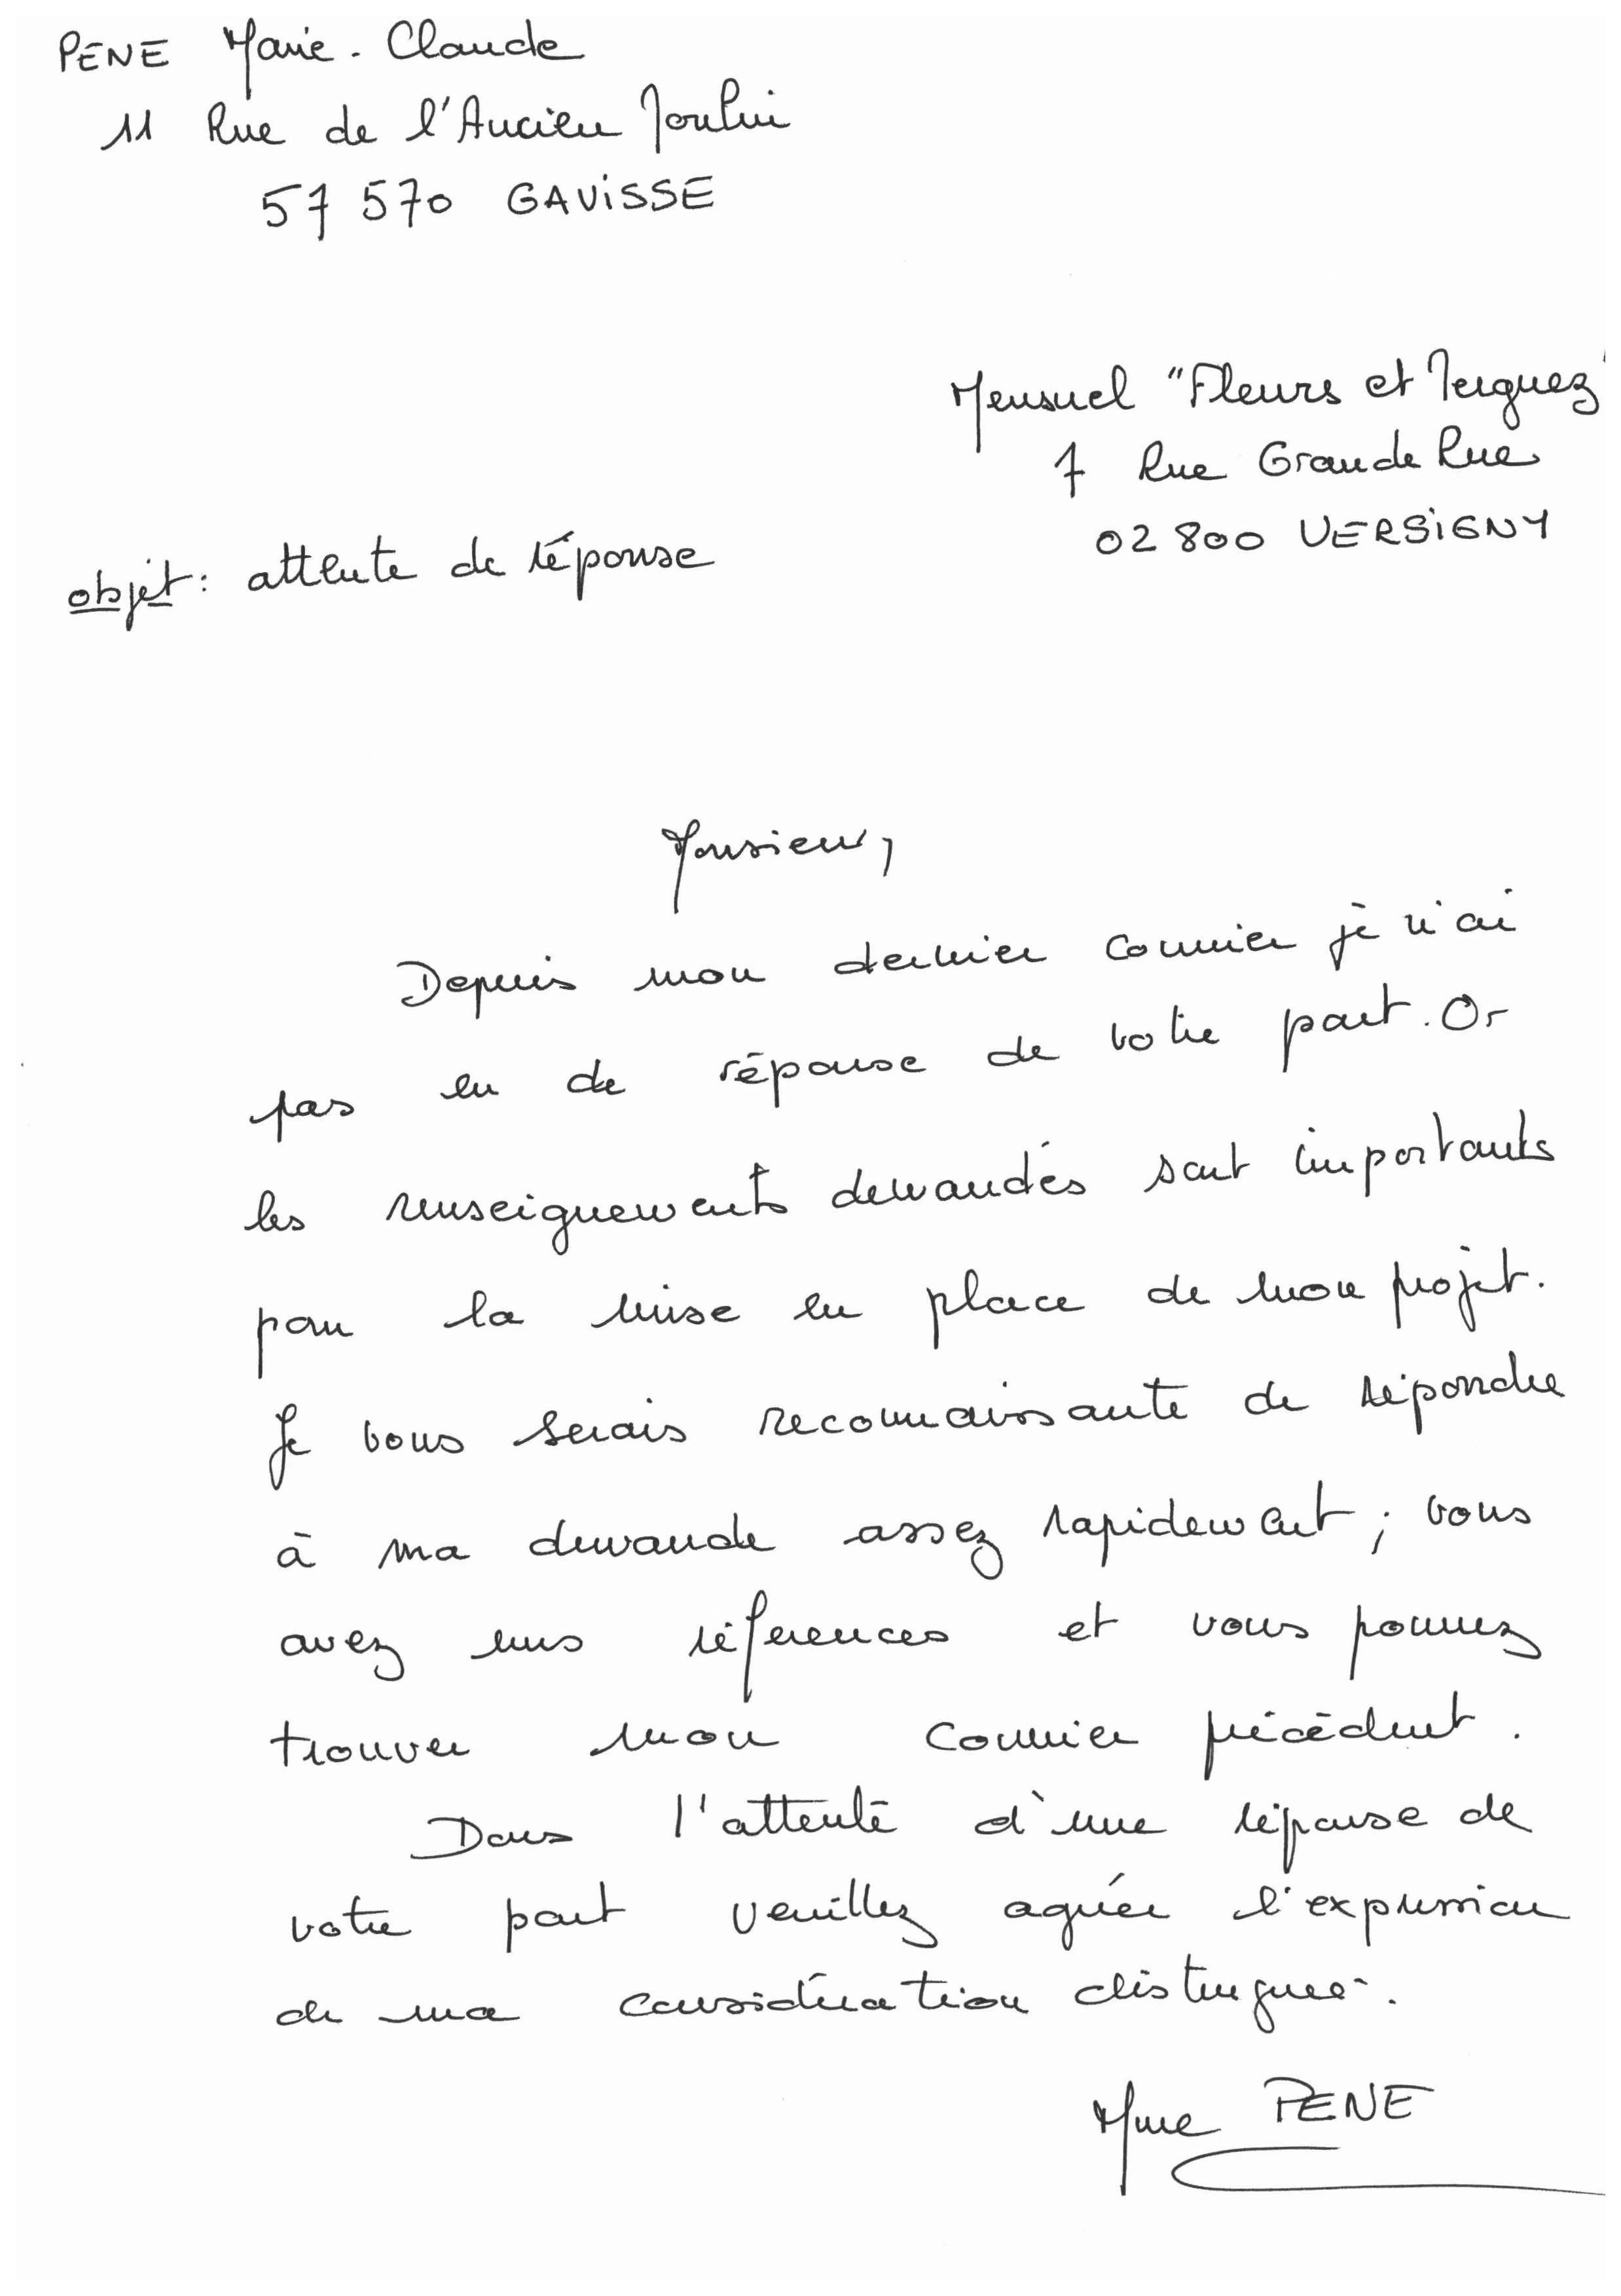 PENE Marie-Claude
11 Rue de l'Ancien Moulin
57 570 GAVISSE
Mensuel "Fleurs et
7 Rue Grande Rue
02 800 VERSIGNY
objet : attente de réponse
Monsieur,
Depuis mon dernier courrier je n'ai
pas eu de réponse de votre part. Or
les renseignements demandés sont importants
pour la mise en place de mon projet.
Je vous serais reconnaissante de répondre
à ma demande assez rapidement ; vous
avez mes références et vous pourrez
trouver mon courrier précédent.
Dans l'attente d'une réponse de
votre part veuillez agréer l'expression
de ma considération distinguée.
Mme PENE